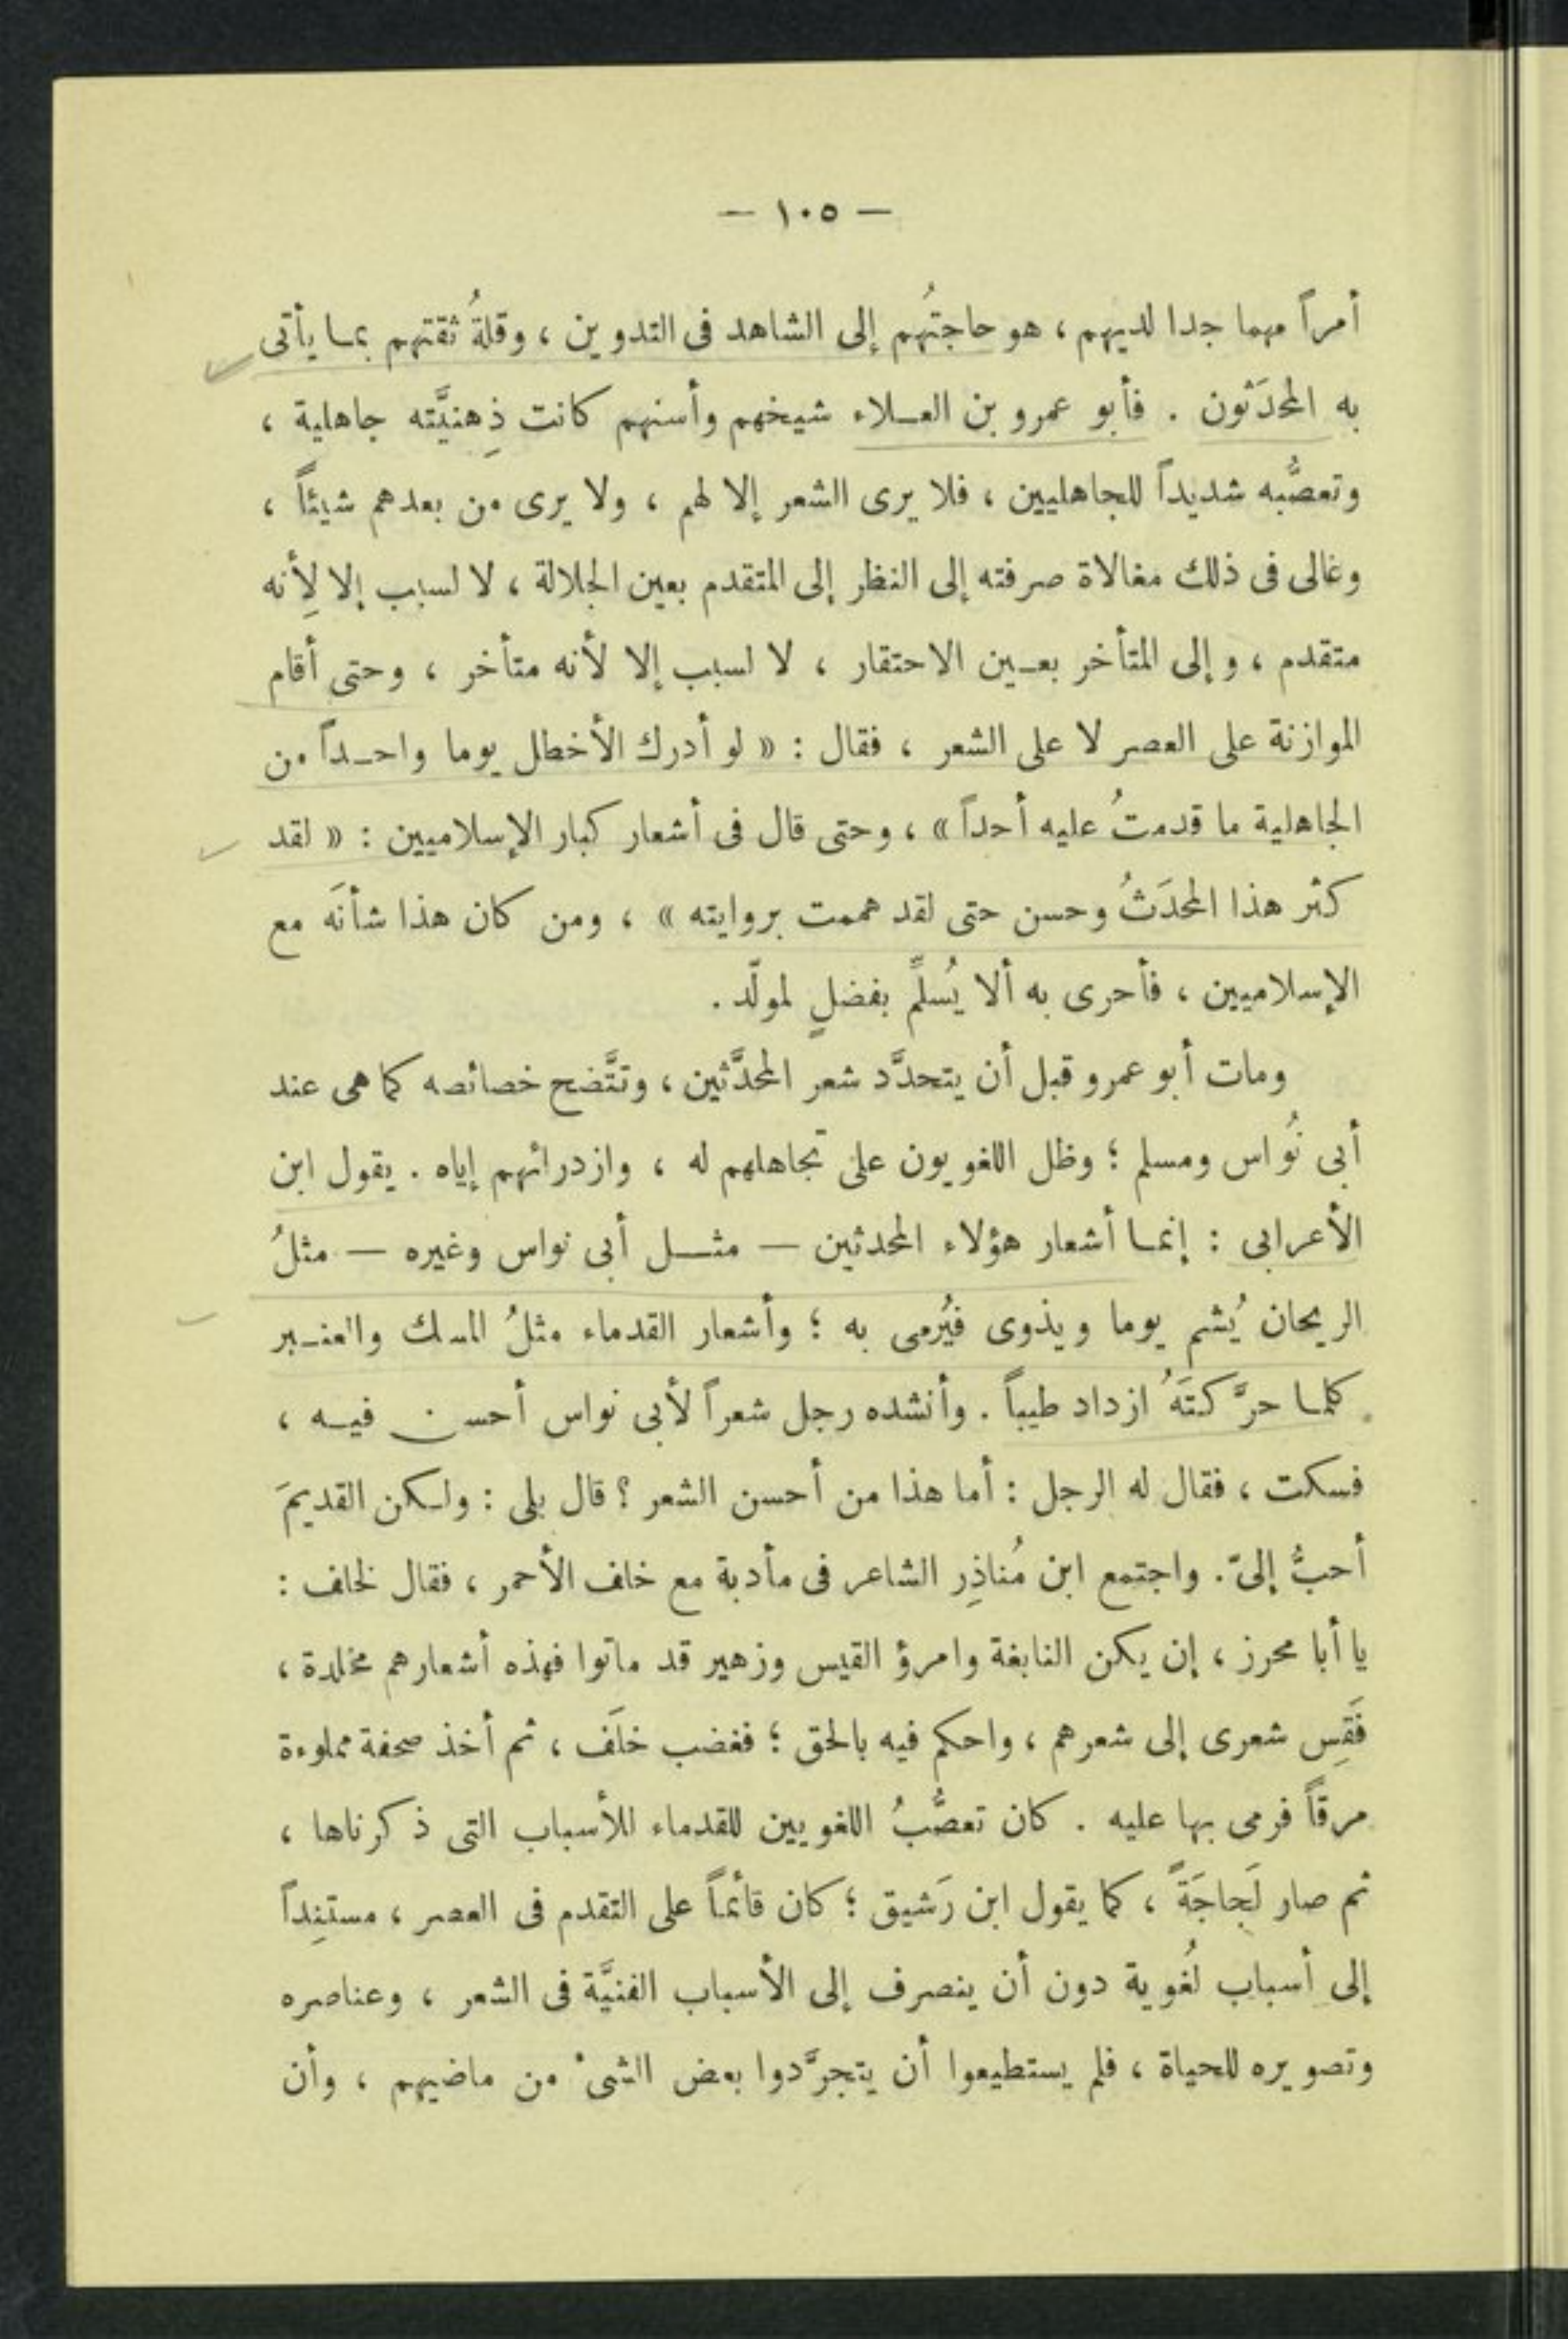 — ١٠٥ —
أمراً مهما جدا لديهم ، هو حاجتُهم إلى الشاهد فى التدوين ، وقلةُ ثقتهم بما يأتى
به المحدَثون . فأبو عمرو بن العلاء شيخهم وأسنهم كانت ذِهنيَّته جاهلية ،
وتعصُّبه شديداً للجاهليين ، فلا يرى الشعر إلا لهم ، ولا يرى من بعدهم شيئاً ،
وغالى فى ذلك مغالاة صرفته إلى النظر إلى المتقدم بعين الجلالة ، لا لسبب إلا لِأنه
متقدم ، وإلى المتأخر بعين الاحتقار ، لا لسبب إلا لأنه متأخر ، وحتى أقام
الموازنة على العصر لا على الشعر ، فقال : « لو أدرك الأخطل يوما واحداً من
الجاهلية ما قدمتُ عليه أحداً » ، وحتى قال فى أشعار كبار الإسلاميين : « لقد
كثر هذا المحدَثُ وحسن حتى لقد هممت بروايته » ، ومن كان هذا شأنَه مع
الإسلاميين ، فأحرى به ألا يُسلِّم بفضلٍ لمولّد .
ومات أبو عمرو قبل أن يتحدَّد شعر المحدَّثين ، وتتَّضح خصائصه كما هى عند
أبى نُواس ومسلم ؛ وظل اللغويون على تجاهلهم له ، وازدرائهم إياه . يقول ابن
الأعرابى : إنما أشعار هؤلاء المحدثين — مثل أبى نواس وغيره — مثلُ
الريحان يُشم يوما ويذوى فيُرمى به ؛ وأشعار القدماء مثلُ المسك والعنبر
كلما حرَّكتَهُ ازداد طيباً . وأنشده رجل شعراً لأبى نواس أحسن فيه ،
فسكت ، فقال له الرجل : أما هذا من أحسن الشعر ؟ قال بلى : ولكن القديمَ
أحبُّ إلىّ . واجتمع ابن مُناذِر الشاعر فى مأدبة مع خلف الأحمر ، فقال لخلف :
يا أبا محرز ، إن يكن النابغة وامرؤ القيس وزهير قد ماتوا فهذه أشعارهم مخلدة ،
فَقِس شعرى إلى شعرهم ، واحكم فيه بالحق ؛ فغضب خلَف ، ثم أخذ صحفة مملوءة
مرقاً فرمى بها عليه . كان تعصُّبُ اللغويين للقدماء للأسباب التى ذكرناها ،
ثم صار لَجاجَةً ، كما يقول ابن رَشيق ؛ كان قائماً على التقدم فى العصر ، مستنِداً
إلى أسباب لُغوية دون أن ينصرف إلى الأسباب الفنيَّة فى الشعر ، وعناصره
وتصويره للحياة ، فلم يستطيعوا أن يتجرَّدوا بعض الشىء من ماضيهم ، وأن